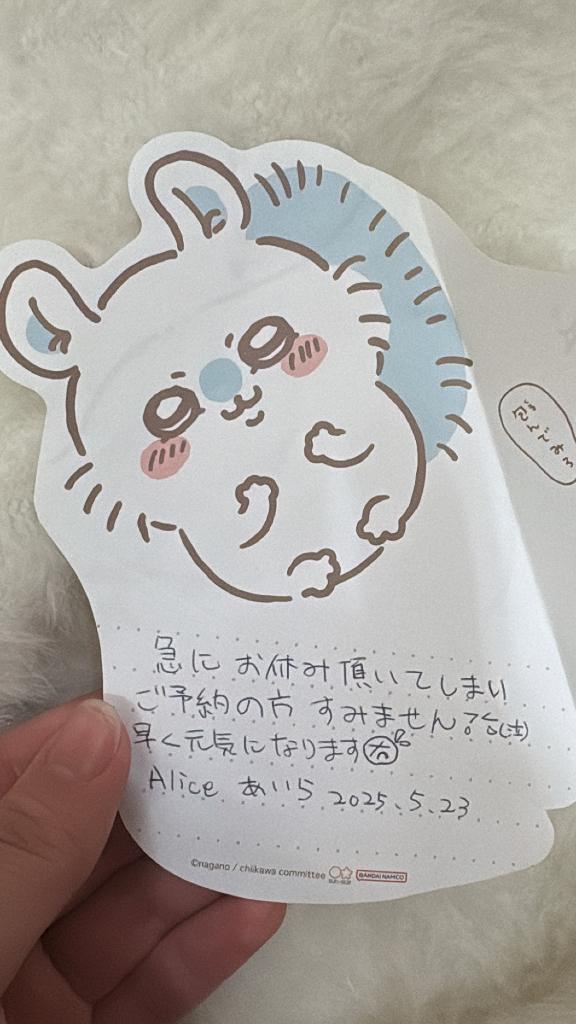 急に お休み 頂いてしまい
ご予約の方 すみません
早く元気になります
Alice あいら 2025.5.23
©nagano / chiikawa committee
SUN-STAR
BANDAI NAMCO